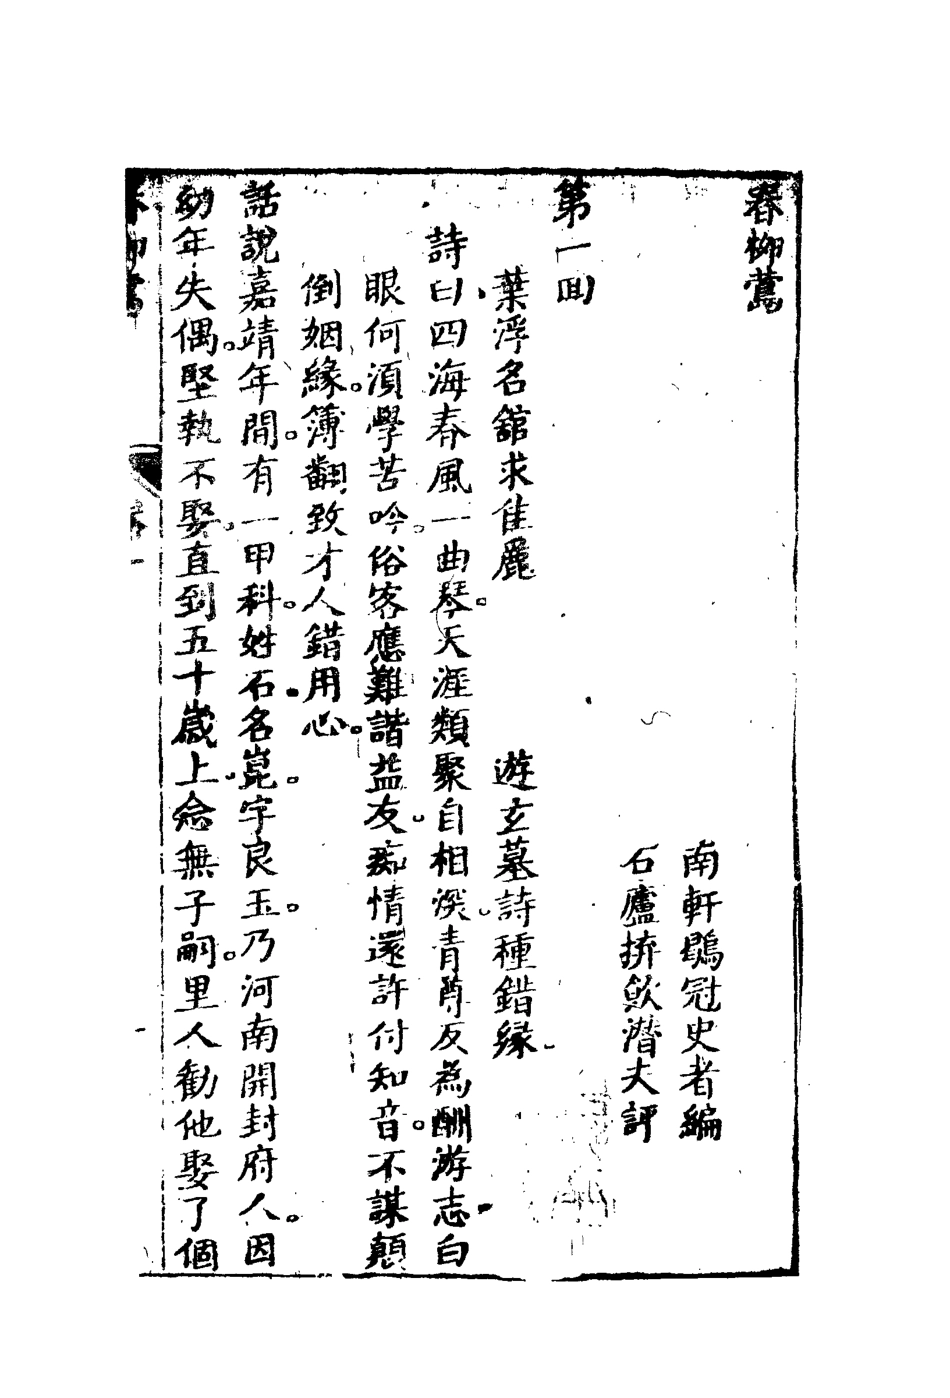 春柳鶯
南軒鶡冠史者編
石廬拚飲潛夫評
第一回
葉浮名舘求佳麗　遊玄墓詩種錯縁
詩曰四海春風一曲琴。天涯類聚自相深。青尊反為酬游志。白
眼何湏學苦吟。俗客應難諧益友。痴情還許付知音。不謀顛
倒姻緣簿。翻致才人錯用心。
話說嘉靖年間。有一甲科。姓石名崑。字良玉。乃河南開封府人。因
幼年失偶。堅執不娶。直到五十歲上。念無子嗣。里人勸他娶了個
春柳鶯
卷一